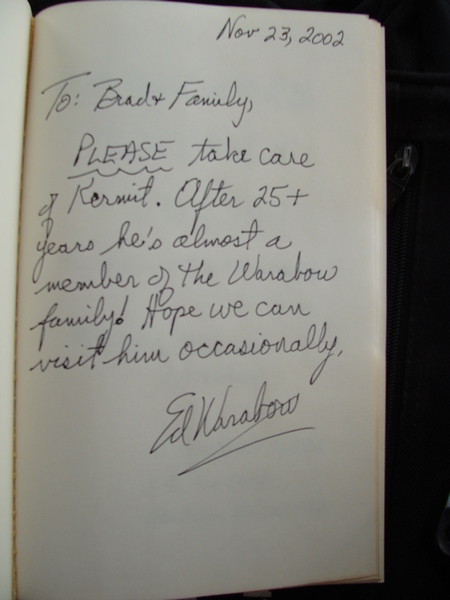 Nov 23, 2002
To: Brad & Family,
PLEASE take care
of Kermit. After 25+
years he's almost a
member of the Warabow
family! Hope we can
visit him occasionally.
Ed Warabow